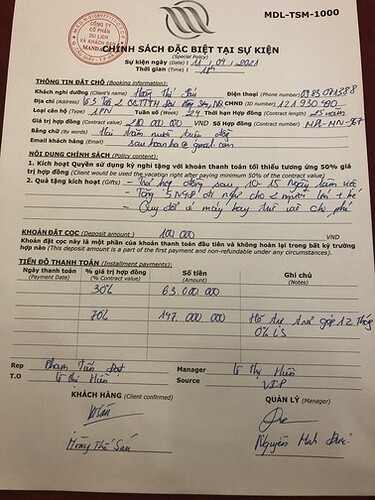 MDL-TSM-1000
CÔNG TY
CỔ PHẦN
DU LỊCH
VÀ KHÁCH SẠN
MANDALA
CHÍNH SÁCH ĐẶC BIỆT TẠI SỰ KIỆN
(Special Policy)
Sự kiện ngày (Date) 11 / 09 / 2021
Thời gian (Time)
THÔNG TIN ĐẶT CHỖ (Booking information):
Khách nghỉ dưỡng (Client name)
Điện thoại (Phone number)
Địa chỉ (Address)
CMND (ID number) 121930
Loại căn hộ (Type) 1PN
Tuần số (Week) 29
Thời hạn Hợp đồng (Contract length) 25 năm
Giá trị hợp đồng (Contract value) 210 000 000 VND
Số Hợp đồng (Contract number)
Bằng chữ (By words) Hai trăm mười triệu đồng
Email khách hàng (Email)
NỘI DUNG CHÍNH SÁCH (Policy content):
1. Kích hoạt Quyền sử dụng kỳ nghỉ tặng với khoản thanh toán tối thiểu tương ứng 50% giá
trị hợp đồng (Client would be used the vacation right after paying minimum 50% of the contract value)
2. Quà tặng kích hoạt (Gifts) - Trả hợp đồng sau 10-15 ngày làm việc
- Tặng 5N4Đ đi nghỉ cho 2 người lớn + trẻ
- Quy đổi vé máy bay
KHOẢN ĐẶT CỌC (Deposit amount) VND
Khoản đặt cọc này là một phần của khoản thanh toán đầu tiên và không hoàn lại trong bất kỳ trường
hợp nào (This deposit amount is a part of the first payment and non-refundable under any circumstances).
TIẾN ĐỘ THANH TOÁN (Installment payments):
Ngày thanh toán % giá trị hợp đồng Số tiền Ghi chú
(Payment Date) (% Contract value) (Amount) (Notes)
30% 63.000.000
70% 147.000.000 Hỗ trợ trả góp 12 tháng
0% LS
Rep Phạm Tiến Đạt Manager Vũ Thị Hiền
T.O Vũ Thị Hiền Source VIP
KHÁCH HÀNG (Client confirmed) QUẢN LÝ (Manager)